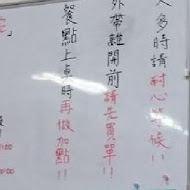 人多時請耐心等候!!
外帶離開前請先買單!!
餐點上桌時再做加點!!